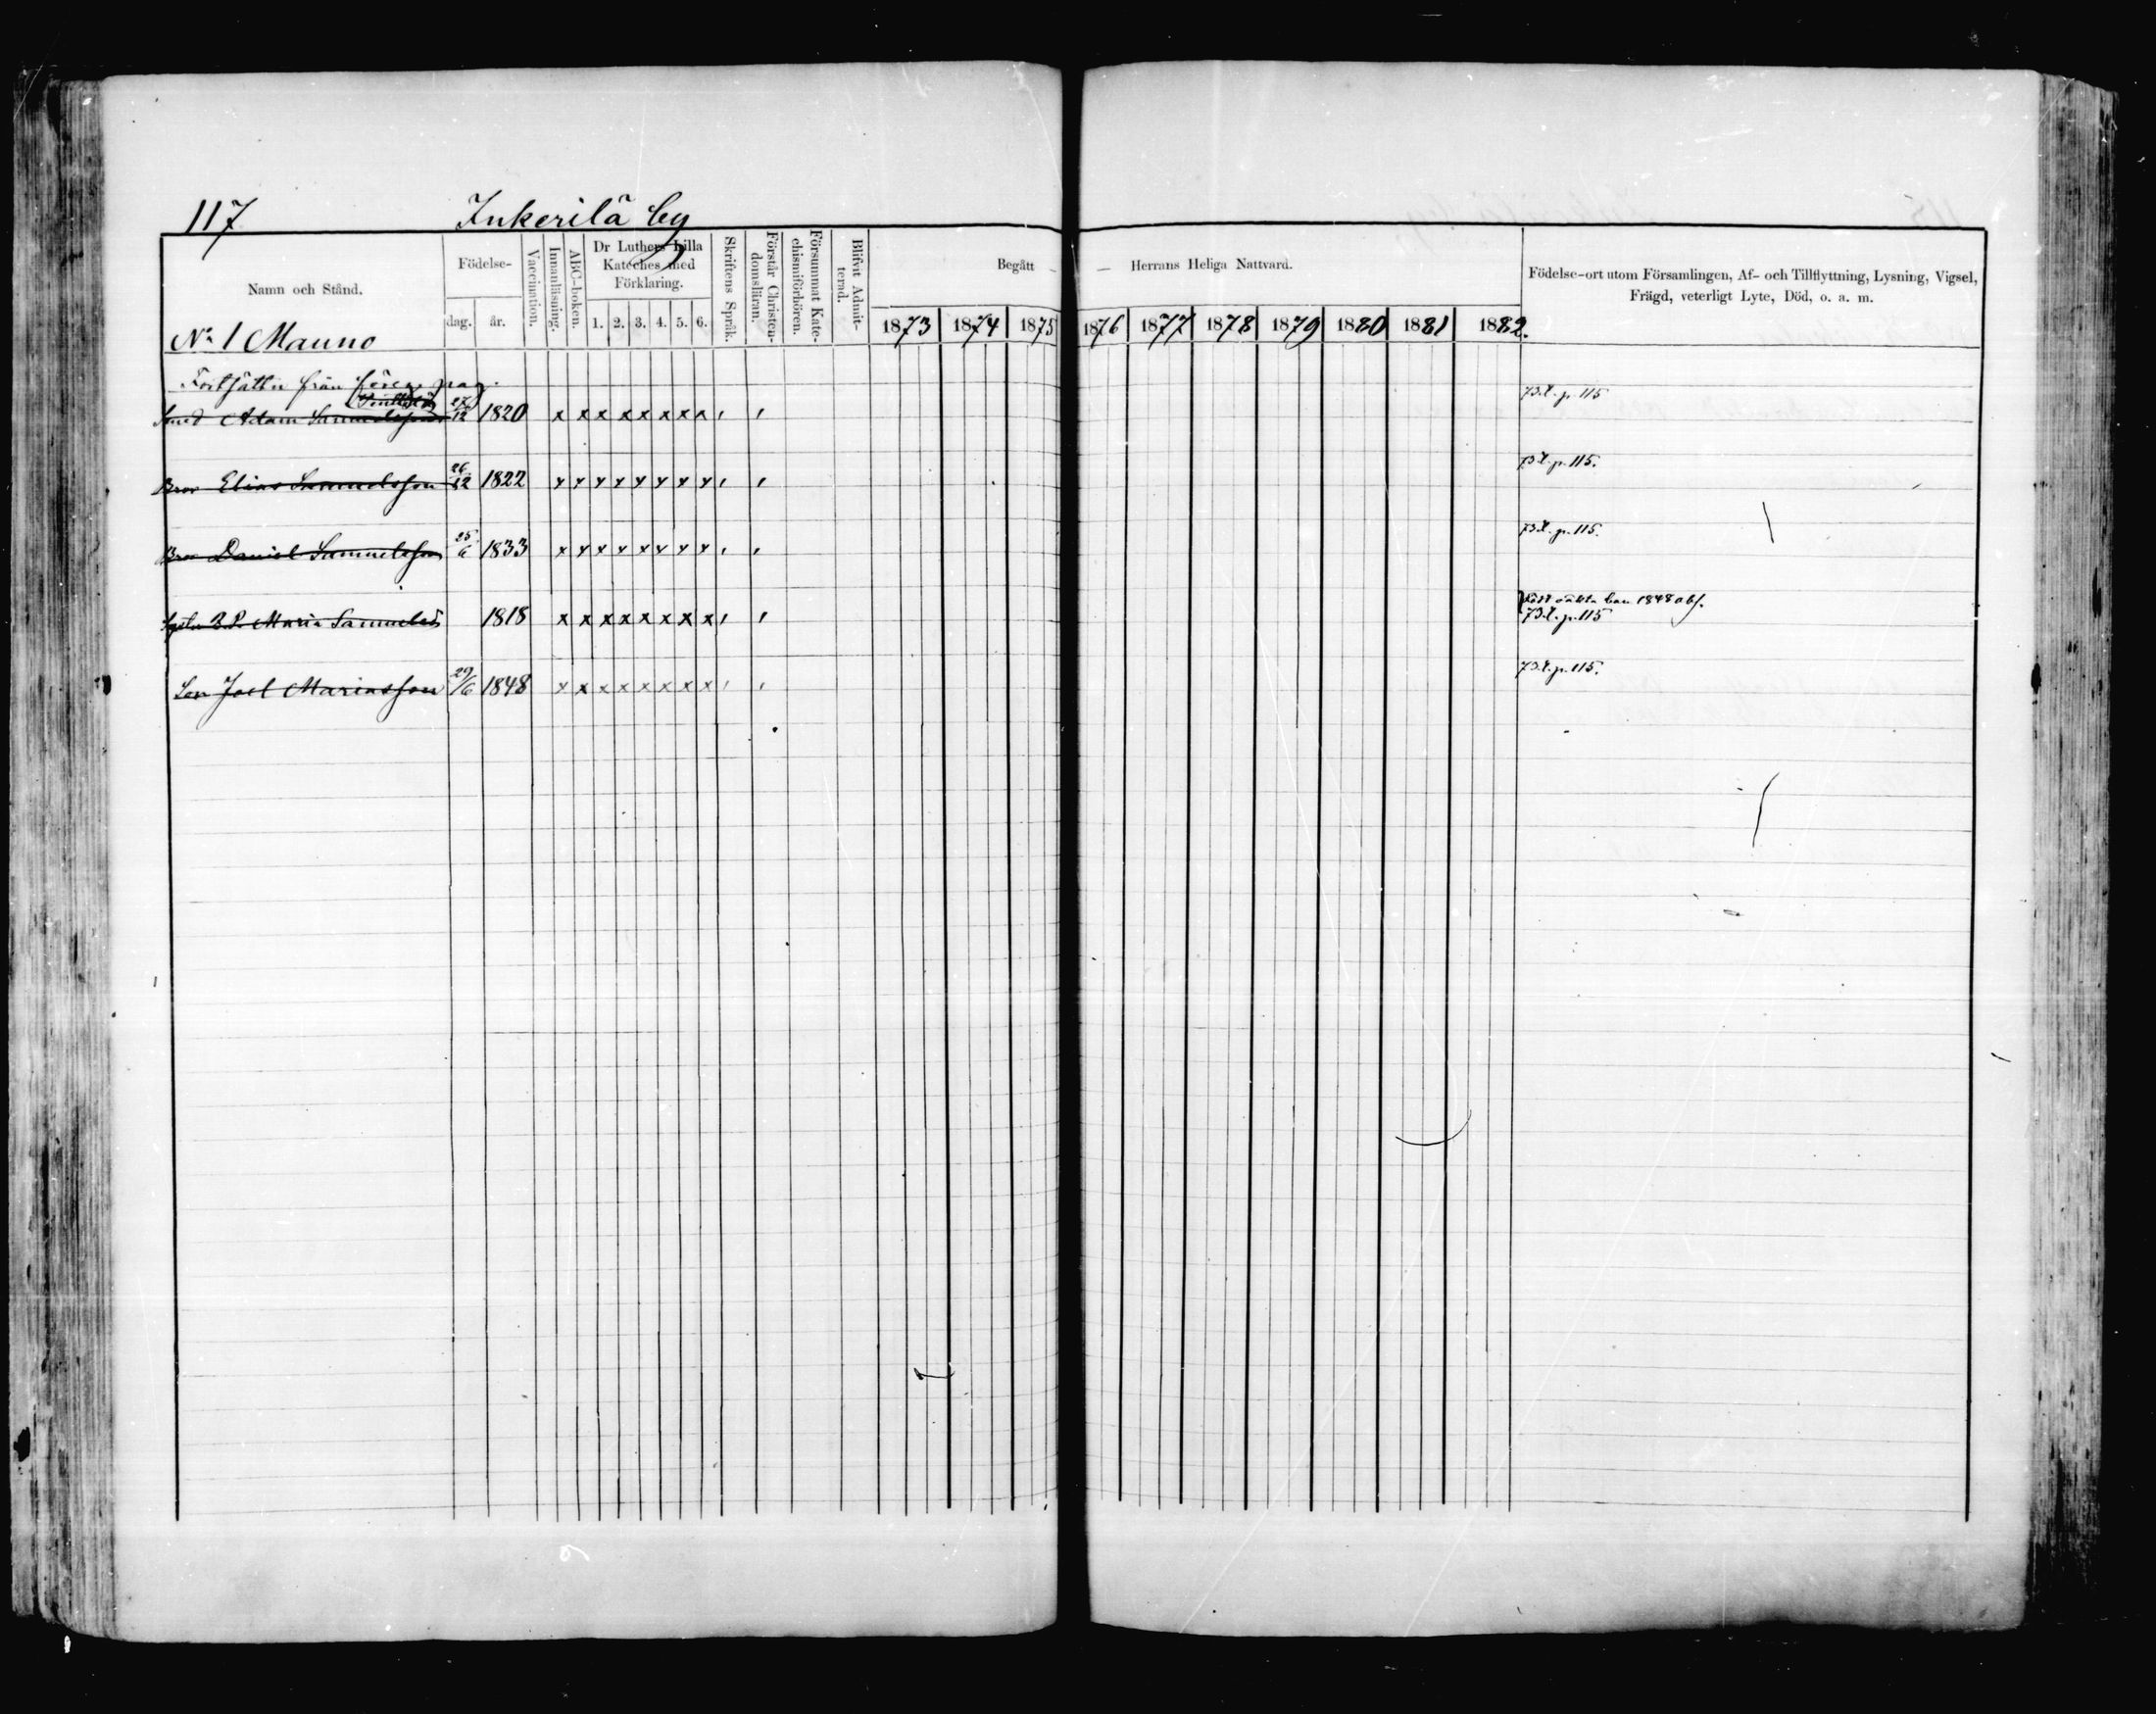 117 Inkerilä by
Namn och Stånd.
Födelse-
dag. år.
Vaccination.
Innanläsning.
ABC-boken.
Dr Luthers Lilla
Kateches med
Förklaring.
1. 2. 3. 4. 5. 6.
Skriftens Språk.
Förstår Christen-
domsläran.
Försummat Kate-
chismiförhören.
Blifvit Admit-
terad.
Begått — — Herrans Heliga Nattvard.
1873 1874 1875 1876 1877 1878 1879 1880 1881 1882.
Födelse-ort utom Församlingen, Af- och Tillflyttning, Lysning, Vigsel,
Frägd, veterligt Lyte, Död, o. a. m.
No 1 Mauno
Fortsättn från föreg. pag.
Smed Adam Samuelsson 27/12 1820 x x x x x x x x , , p. 115
Bror Elias Samuelsson 26/12 1822 x x x x x x x x , , p. 115.
Bror Daniel Samuelsson 25/6 1833 x x x x x x x x , , p. 115.
Maria Samuelsd 1818 x x x x x x x x , , 1848
p. 115
Son Joel Mariasson 29/6 1848 x x x x x x x x , , p. 115.